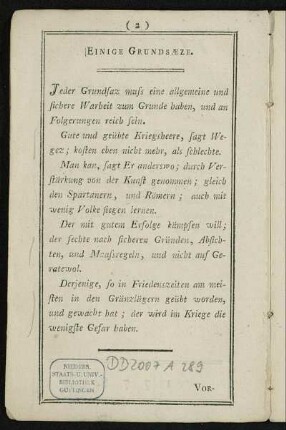 ( 2 )
EINIGE GRUNDSÆZE.
Jeder Grundsaz muss eine allgemeine und
sichere Warheit zum Grunde haben, und an
Folgerungen reich sein.
Gute und geübte Kriegsheere, sagt We-
gez; kosten eben nicht mehr, als schlechte.
Man kan, sagt Er anderswo; durch Ver-
stärkung von der Kunst genommen; gleich
den Spartanern, und Römern; auch mit
wenig Volke siegen lernen.
Der mit gutem Erfolge kämpfen will;
der fechte nach sicheren Gründen, Absich-
ten, und Maasregeln, und nicht auf Ge-
ratewol.
Derjenige, so in Friedenszeiten am mei-
sten in den Gränzlägern geübt worden,
und gewacht hat; der wird im Kriege die
wenigste Gefar haben.
NIEDERS.
STAATS- U. UNIV.-
BIBLIOTHEK
GÖTTINGEN
DD2007 A 289
VOR-